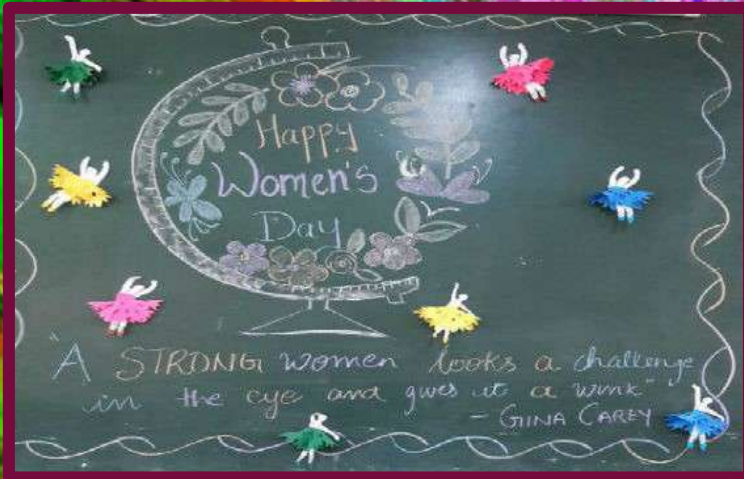 Happy
Women's
Day
"A STRONG women looks a challenge
in the eye and gives it a wink"
- GINA CAREY